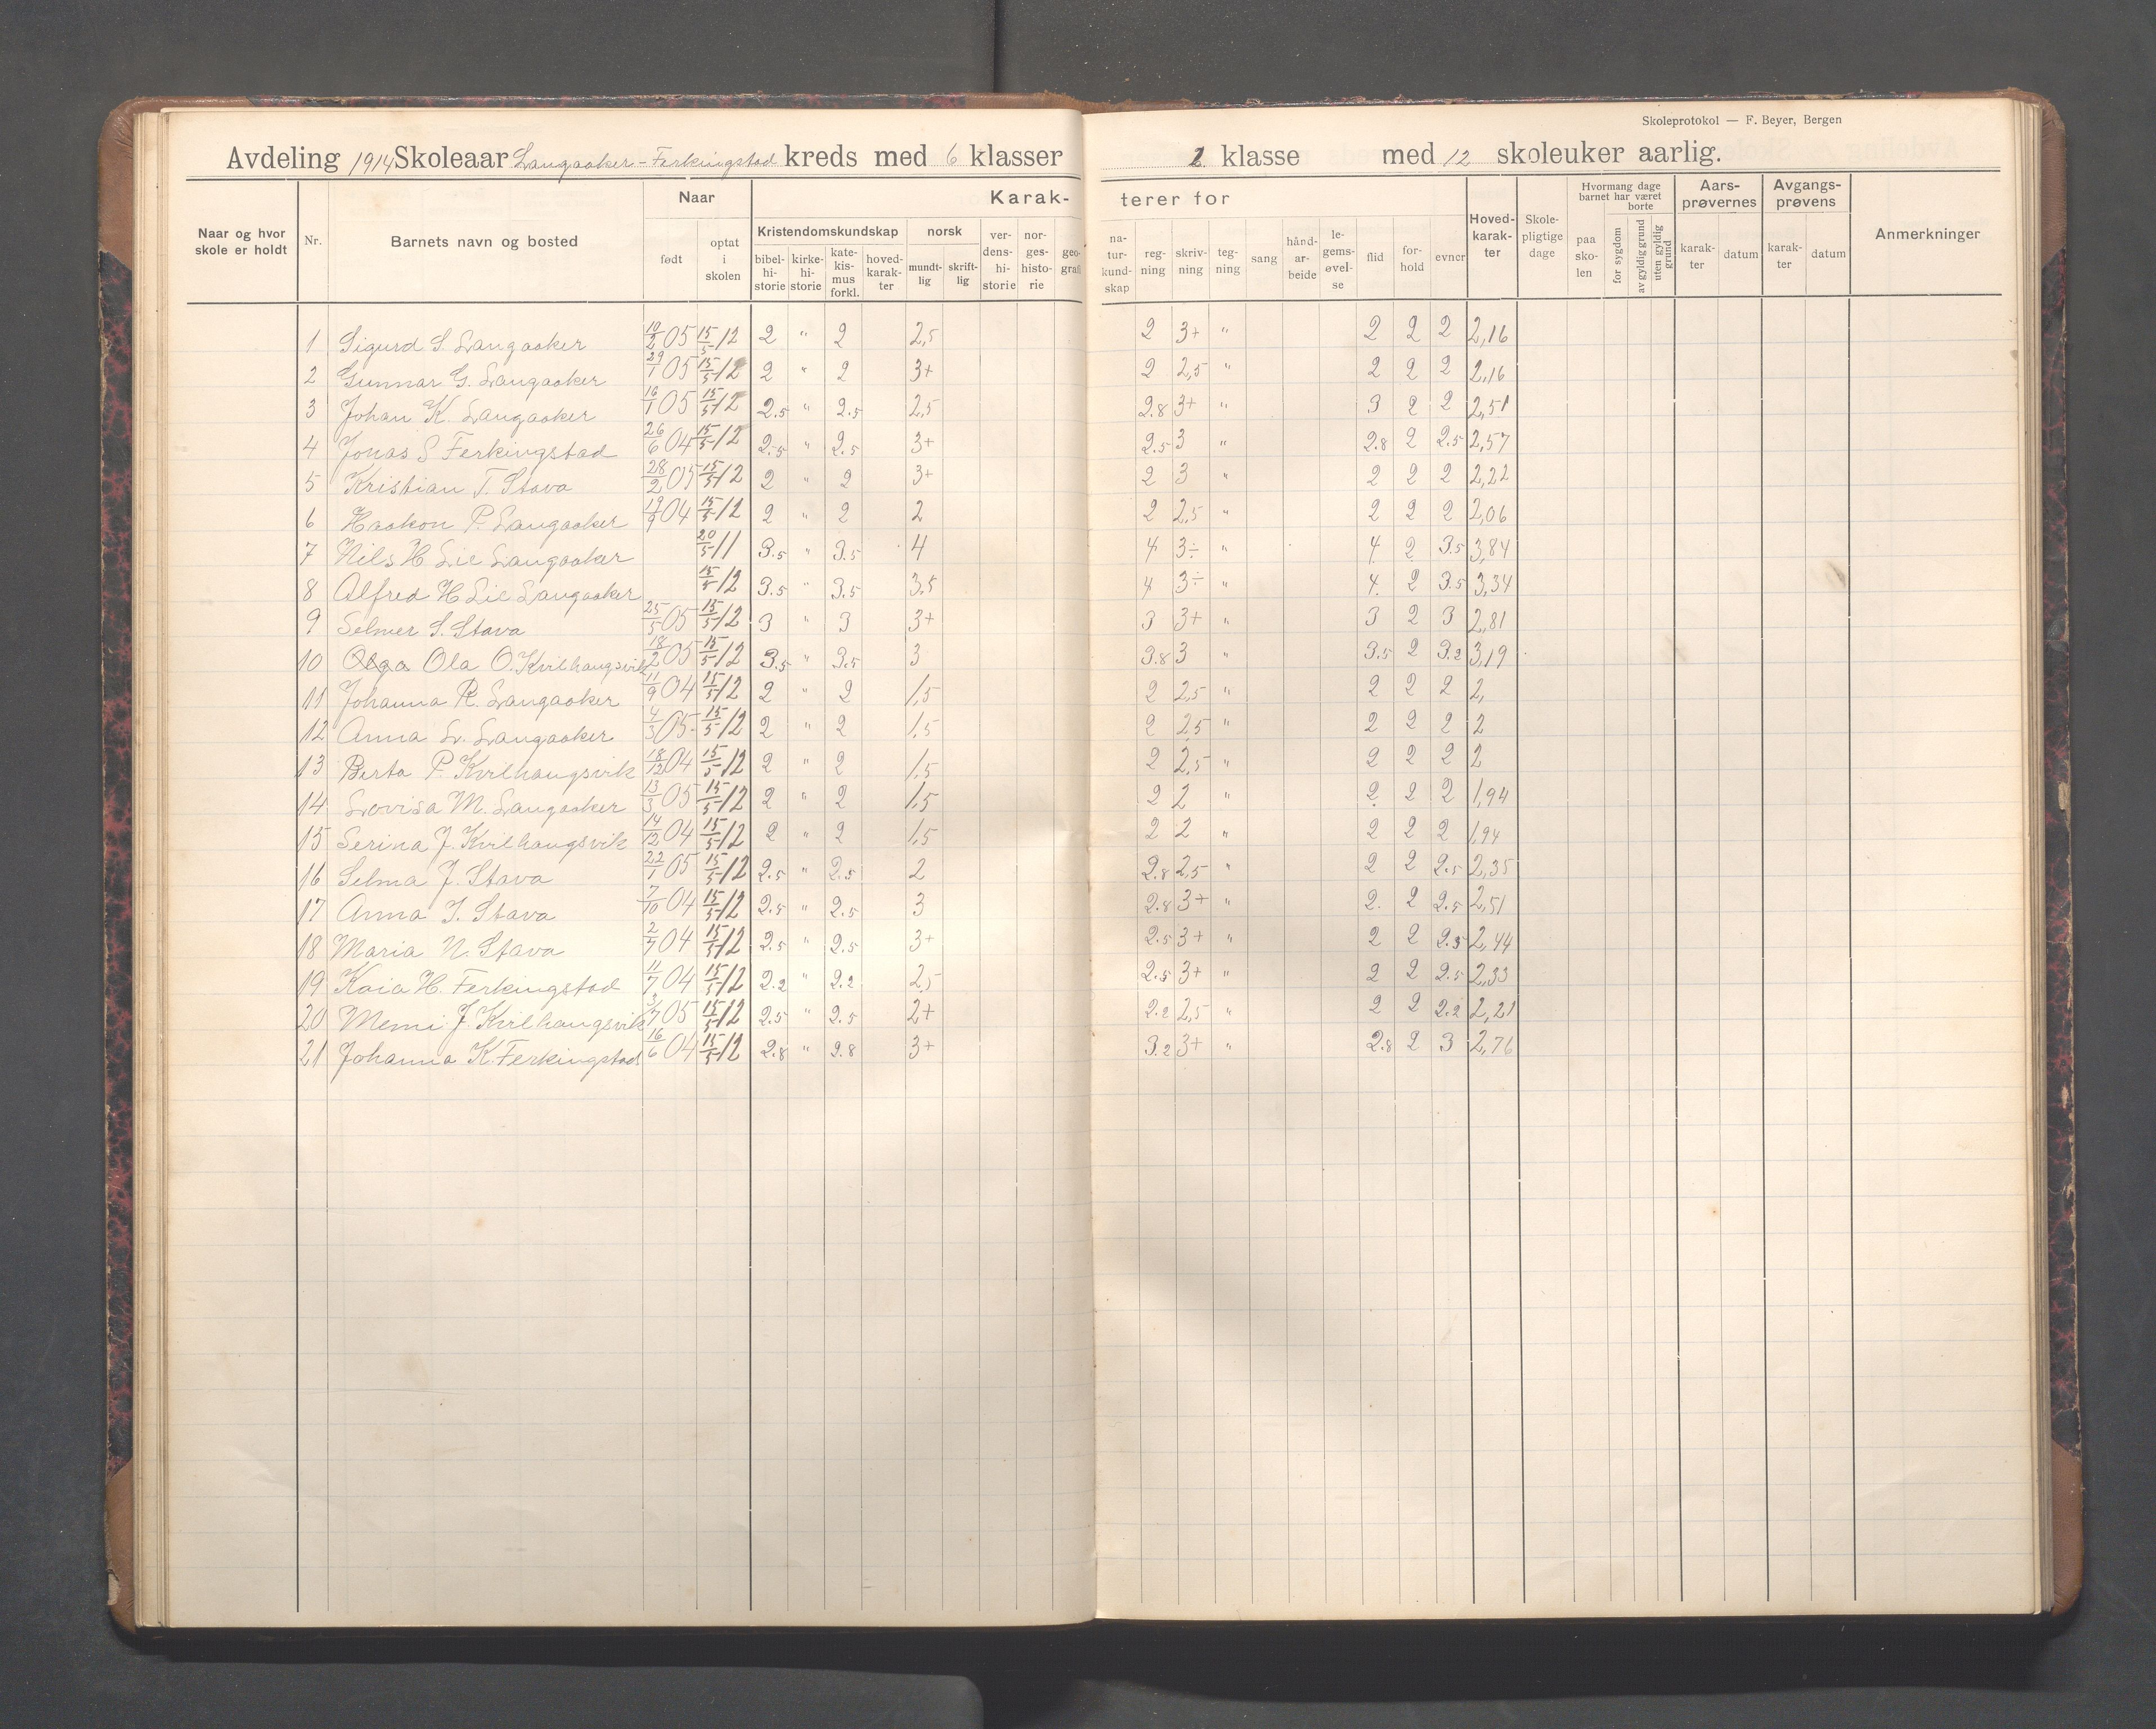 Skoleprotokol — F. Beyer, Bergen
Avdeling 1914 Skoleaar Langaaker - Ferkingstad kreds med 6 klasser 2 klasse med 12 skoleuker aarlig.
Naar og hvor skole er holdt Nr. Barnets navn og bosted Naar født optat i skolen Karakterer for Kristendomskundskap bibelhistorie kirkehistorie katekismus forkl. hovedkarakter norsk mundtlig skriftlig verdenshistorie norgeshistorie geografi naturkundskap regning skrivning tegning sang håndarbeide legemsøvelse flid forhold evner Hovedkarakter Skolepligtige dage Hvormang dage barnet har været paa skolen borte for sygdom av gyldig grund uten gyldig grund Aarsprøvernes karakter datum Avgangsprøvens karakter datum Anmerkninger
1 Sigurd S. Langaaker 10/2 05 15/5 12 2 " 2 2,5 2 3+ " 2 2 2 2,16
2 Gunnar G. Langaaker 29/1 05 15/5 12 2 " 2 3+ 2 2,5 " 2 2 2 2,16
3 Johan K. Langaaker 16/1 05 15/5 12 2.5 " 2.5 2,5 2.8 3+ " 3 2 2 2,51
4 Jonas S Ferkingstad 26/6 04 15/5 12 2.5 " 2.5 3+ 2.5 3 " 2.8 2 2.5 2,57
5 Kristian T. Stava 28/2 05 15/5 12 2 " 2 3+ 2 3 " 2 2 2 2,22
6 Haakon P. Langaaker 19/9 04 15/5 12 2 " 2 2 2 2,5 " 2 2 2 2,06
7 Nils H Lie Langaaker 20/5 11 3.5 " 3.5 4 4 3÷ " 4 2 3.5 3,84
8 Alfred H Lie Langaaker 15/5 12 3.5 " 3.5 3,5 4 3÷ " 4 2 3.5 3,34
9 Selmer S. Stava 25/5 05 15/5 12 3 " 3 3+ 3 3+ " 3 2 3 2,81
10 Olga Ola O. Kvilhaugsvik 18/2 05 15/5 12 3.5 " 3.5 3 3.8 3 " 3.5 2 3.2 3,19
11 Johanna R. Langaaker 11/9 04 15/5 12 2 " 2 1,5 2 2,5 " 2 2 2 2,
12 Anna L. Langaaker 4/3 05 15/5 12 2 " 2 1,5 2 2,5 " 2 2 2 2
13 Berta P. Kvilhaugsvik 18/12 04 15/5 12 2 " 2 1,5 2 2,5 " 2 2 2 2
14 Lovisa M. Langaaker 13/3 05 15/5 12 2 " 2 1,5 2 2 " 2 2 2 1,94
15 Serina J. Kvilhaugsvik 14/12 04 15/5 12 2 " 2 1,5 2 2 " 2 2 2 1,94
16 Selma J. Stava 22/1 05 15/5 12 2.5 " 2.5 2 2.8 2,5 " 2 2 2.5 2,35
17 Anna J. Stava 7/10 04 15/5 12 2.5 " 2.5 3 2.8 3+ " 2. 2 2.5 2,51
18 Maria N. Stava 2/7 04 15/5 12 2.5 " 2.5 3+ 2.5 3+ " 2 2 2.5 2,44
19 Kaia H. Ferkingstad 11/7 04 15/5 12 2.2 " 2.2 2,5 2.5 3+ " 2 2 2.5 2,33
20 Memi J. Kvilhaugsvik 3/7 05 15/5 12 2.5 " 2.5 2+ 2.2 2,5 " 2 2 2.2 2,21
21 Johanna K. Ferkingstad 16/6 04 15/5 12 2.8 " 2.8 3+ 3.2 3+ " 2.8 2 3 2,76